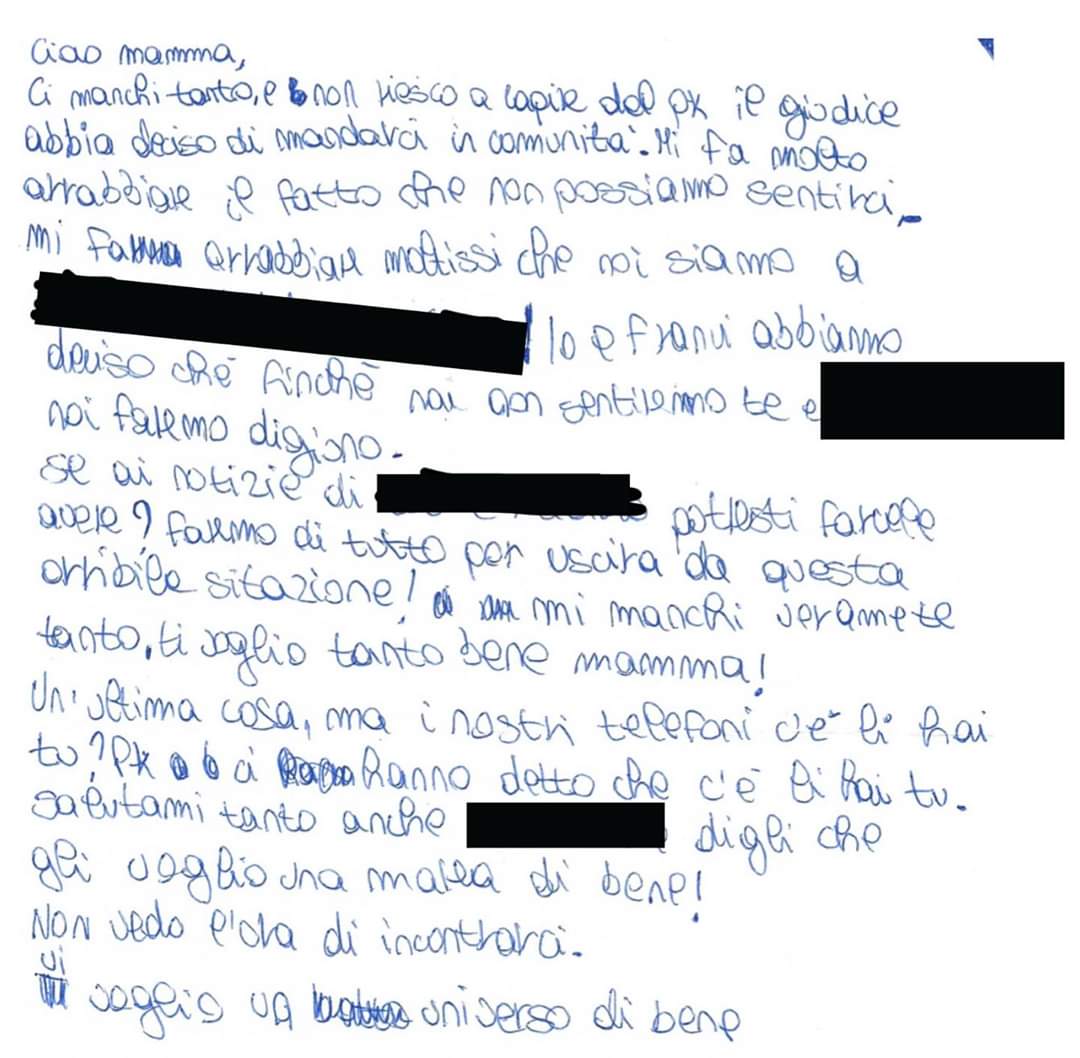 Ciao mamma,
Ci manchi tanto, e non riesco a capire dal pk il giudice
abbia deciso di mandarci in comunità. Mi fa molto
arrabbiare il fatto che non possiamo sentirci,
mi fa arrabbiare moltissi che noi siamo a
! Io e frani abbiamo
deciso chè finchè noi non sentiremo te e
noi faremo digiuno.
se ai notizie di potresti farcele
avere? faremo di tutto per uscira da questa
orribile sitazione! mi manchi veramete
tanto, ti voglio tanto bene mamma!
Un'ultima cosa, ma i nostri telefoni c'è li hai
tu? Pk ci hanno detto che c'è li hai tu.
salutami tanto anche digli che
gli voglio una marea di bene!
Non vedo l'ora di incontrarci.
vi
voglio un universo di bene